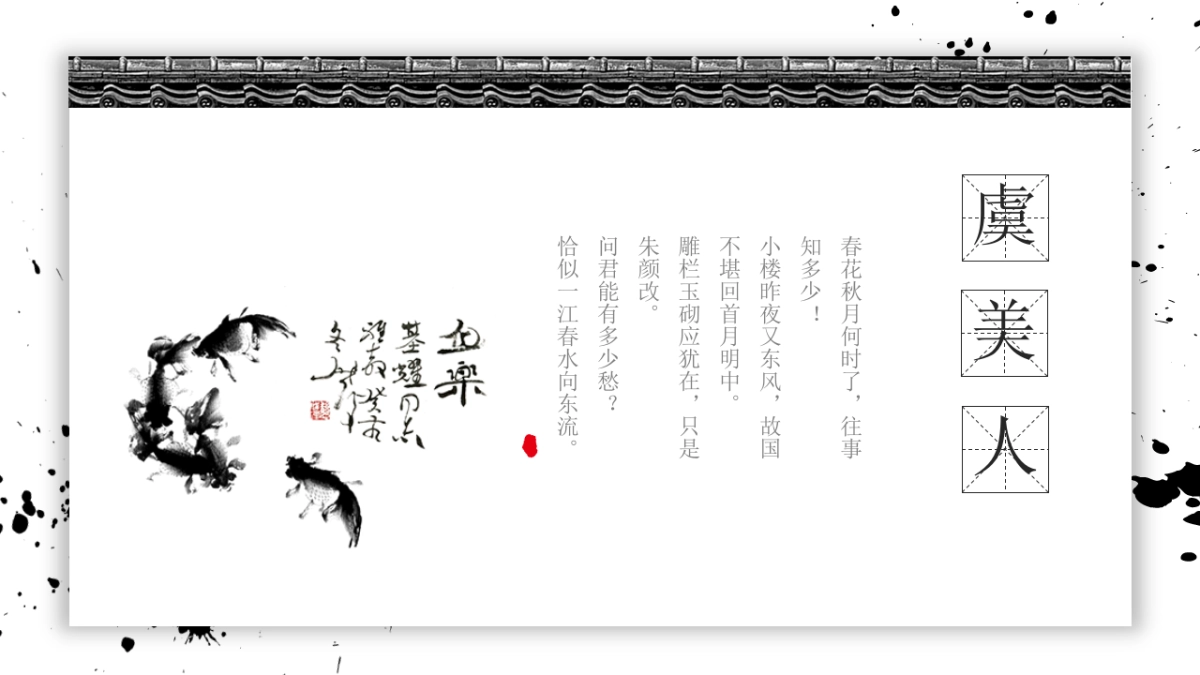 虞美人
春花秋月何时了，往事
知多少！
小楼昨夜又东风，故国
不堪回首月明中。
雕栏玉砌应犹在，只是
朱颜改。
问君能有多少愁？
恰似一江春水向东流。
基耀同志